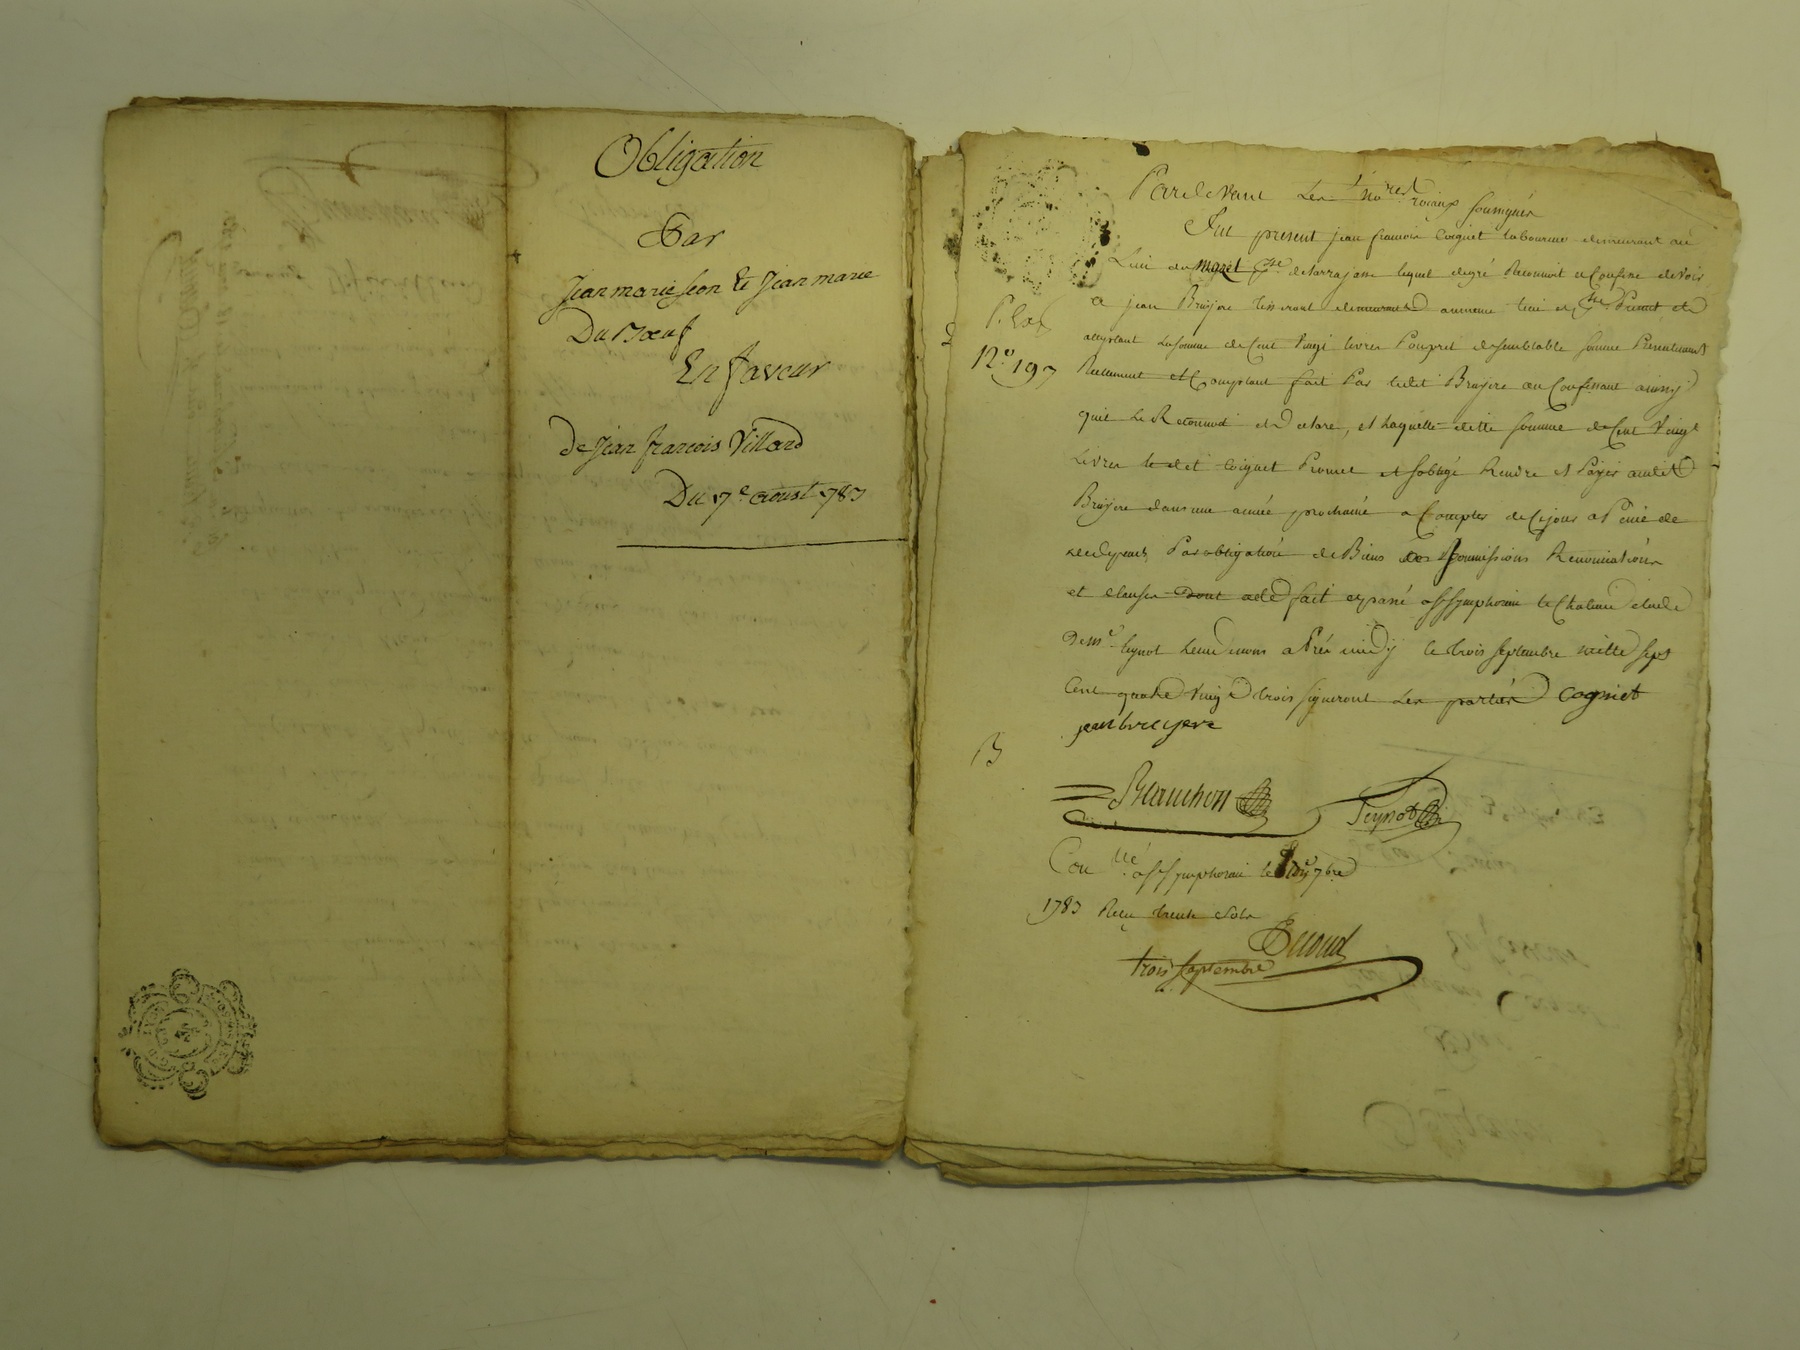 Obligation
Par
Jean marie leon & Jean marie
Du Bœuf
En faveur
De Jean francois Villard
Du 17e aoust 1783
Pardevant Les nores royaux soussignés
Fut present jean francois Coignet laboureur demeurant au
Lieu du Mazel psse de larrajasse lequel de gré Reconnoit et Confesse devoir
a jean Bruyere tisserant demeurant au meme lieu et psse Present et
acceptant La somme de Cent Vingt livres Pour pret de semblable somme Presentement
Reellement et Comptant fait Par ledit Bruyere au Confessant ainsy
quil Le Reconnoit et Declare, et Laquelle ditte somme de Cent Vingt
Livres ledit Coignet Promet et soblige Rendre et Payer audit
Bruyere dans une année prochaine a Compter de Ce jour a Peine de
tous depens Par obligation de Biens soumissions Renonciations
et clauses Dont acte fait et passé a St Symphorien le Chateau etude
De Me peynot L'un de nous aPrés midy le trois septembre mille sept
Cent quatre Vingt trois signeront Les parties Cogniet
jean bruyere
P. Exp
No 197
B
Blanchon Peynot
Conllé a St Symphorien le 7bre
1783 Reçu trente sols
trois septembre